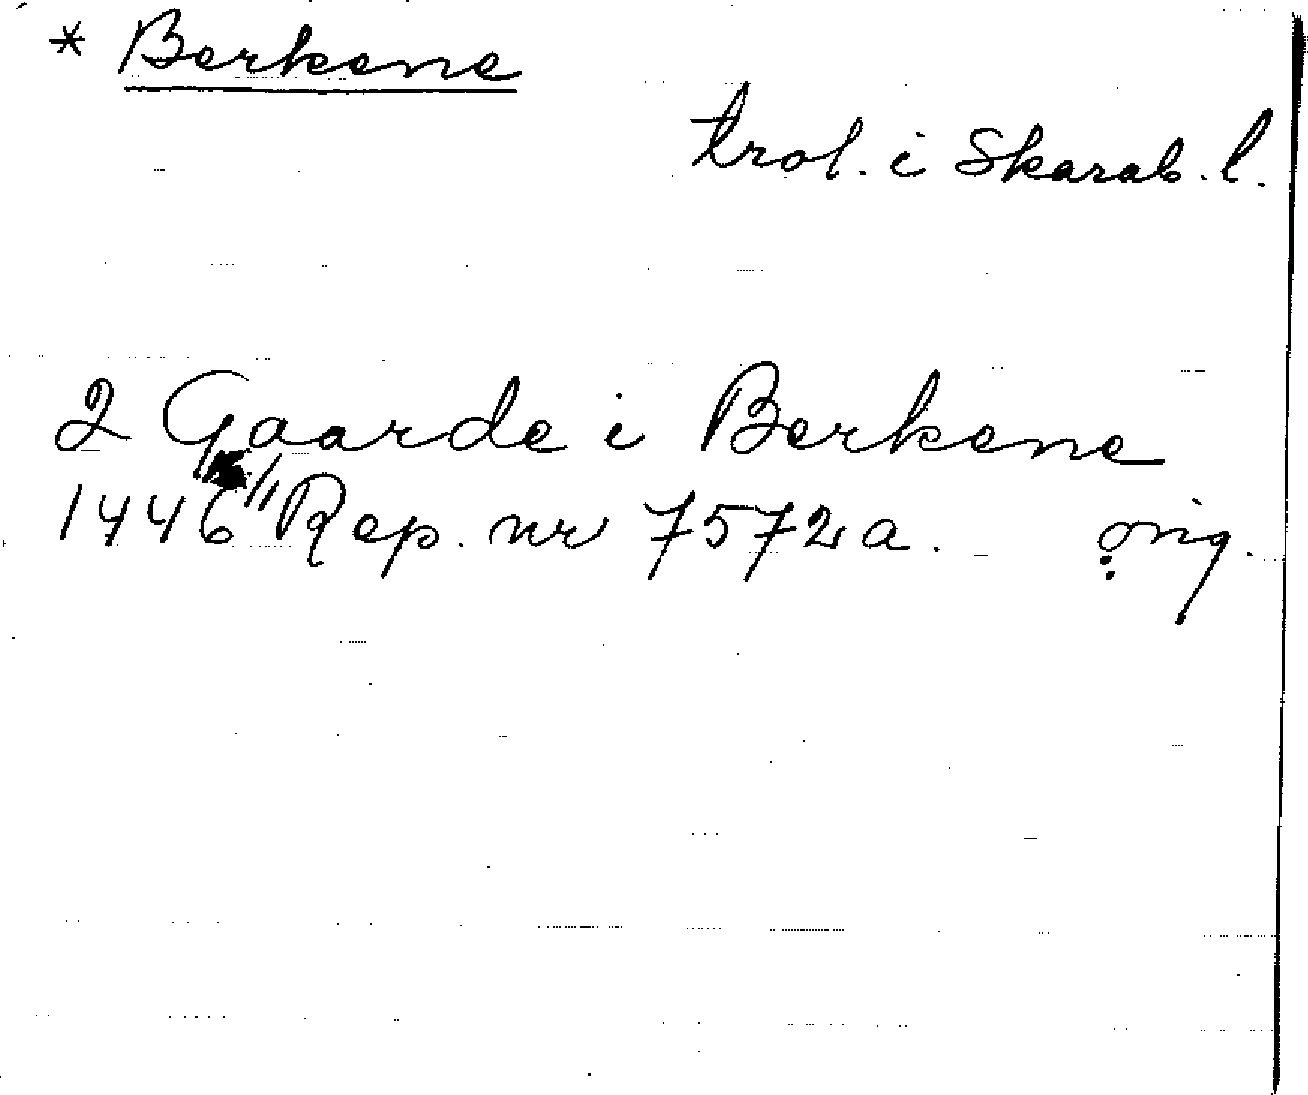 * Berkene
trol. i Skarab. l.
2 Gaarde i Berkene
1446 Rep. nr 7572a. orig.